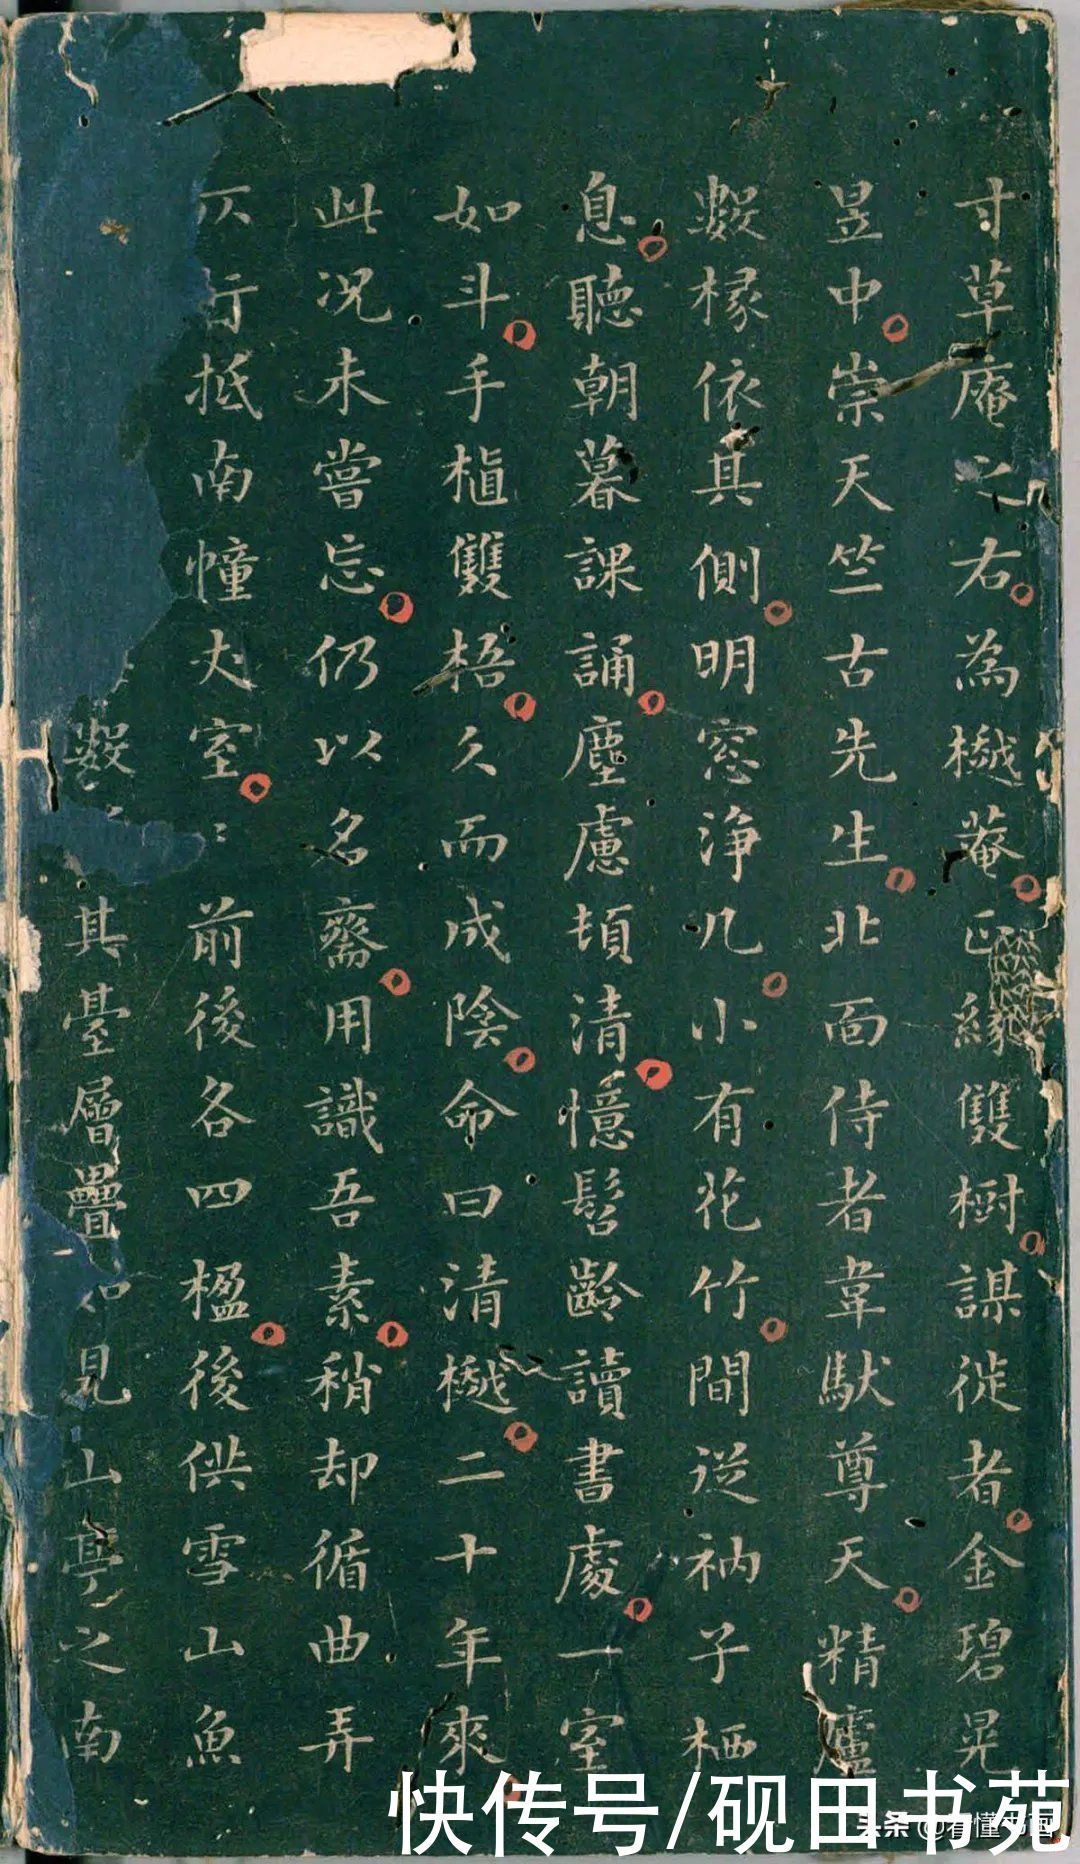 寸草庵之右為樾菴正緣雙樹謀從者金碧晃
昱中崇天竺古先生北面侍者韋馱尊天精廬
數椽依其側明窓淨几小有花竹間從衲子栖
息聽朝暮課誦塵慮頓清憶髫齡讀書處一室
如斗手植雙梧久而成陰命曰清樾二十年來
此况未嘗忘仍以名齋用識吾素稍却循曲弄
行抵南幢丈室前後各四楹後供雪山魚
數其臺層疊見山亭之南
快传号/砚田书苑
头条@看懂书画